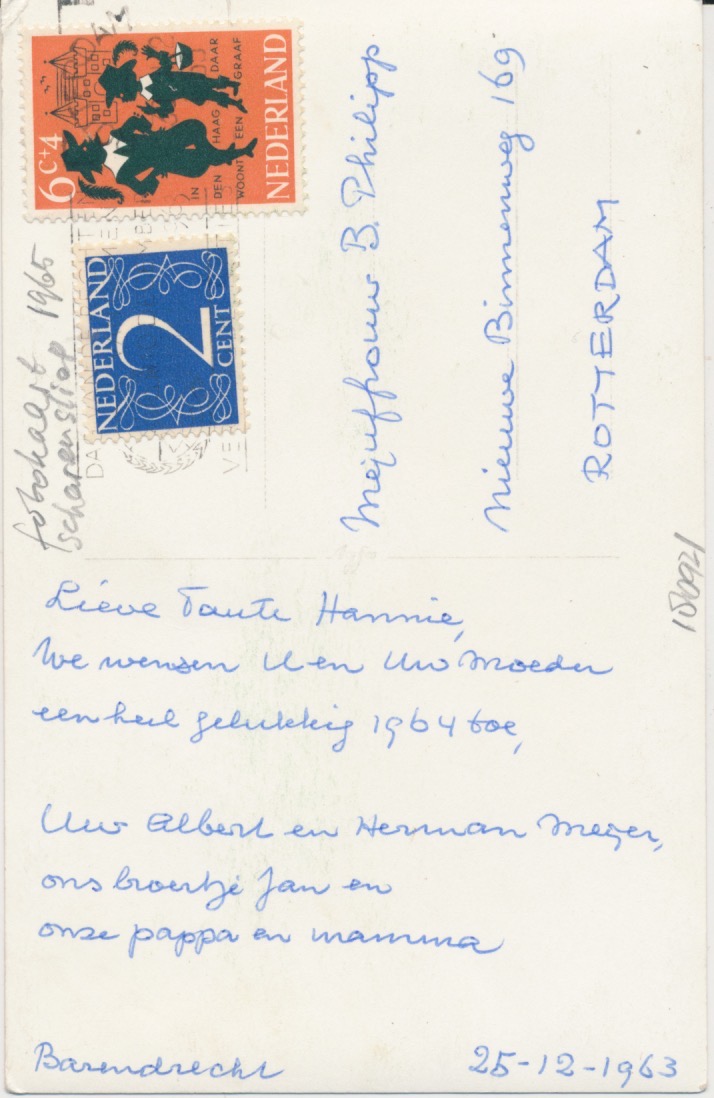 NEDERLAND
6c+4
IN
DEN HAAG DAAR
WOONT EEN GRAAF
NEDERLAND
2
CENT
fotokaart 1965
scharensliep
Mejuffrouw B. Philipp
Nieuwe Binnenweg 169
ROTTERDAM
Lieve Tante Hannie,
We wensen U en Uw Moeder
een heel gelukkig 1964 toe,
Uw Albert en Herman Meijer,
ons broertje Jan en
onze pappa en mamma
Barendrecht 25-12-1963